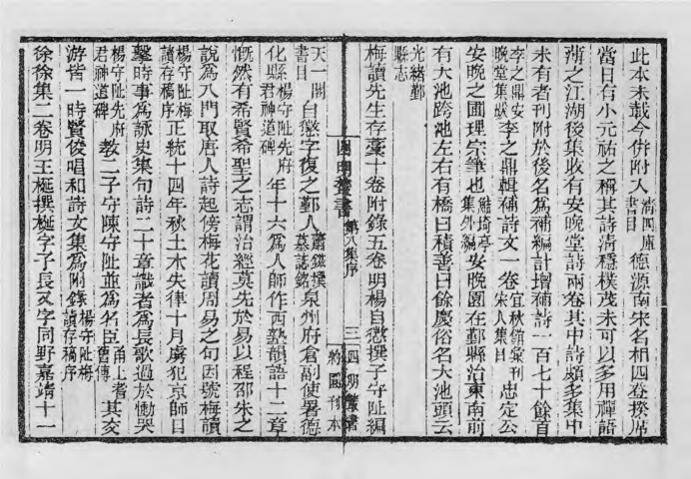 此本未載今併附入清四庫書目德源南宋名相四登揆席
當日有小元祐之稱其詩清穩樸茂未可以多用禪語
薄之江湖後集收有安晚堂詩兩卷其中詩頗多集中
未有者刊附於後名為補編計增補詩一百七十餘首
李之鼎安晚堂集跋李之鼎輯補詩文一卷宜秋館彙刊宋人集目忠定公
安晚之圃理宗筆也鮚埼亭集外編安晚園在鄞縣治東南前
有大池跨池左右有橋曰積善曰餘慶俗名大池頭云
光緒鄞縣志
梅讀先生存稾十卷附錄五卷明楊自懲撰子守阯編
四明叢書 第八集序 三 四明叢書 約園刊本
天一閣書目自懲字復之鄞人蕭鎡撰墓誌銘泉州府倉副使署德
化縣楊守阯先府君神道碑年十六為人師作西塾韻語十二章
慨然有希賢希聖之志謂治經莫先於易以程邵朱之
說為入門取唐人詩起傍梅花讀周易之句因號梅讀
楊守阯梅讀存稿序正統十四年秋土木失律十月虜犯京師目
擊時事為詠史集句詩二十章識者為長歌過於慟哭
楊守阯先府君神道碑教二子守陳守阯並為名臣甬上耆舊傳其交
游皆一時賢俊唱和詩文集為附錄楊守阯梅讀存稿序
徐徐集二卷明王梴撰梴字子長又字同野嘉靖十一